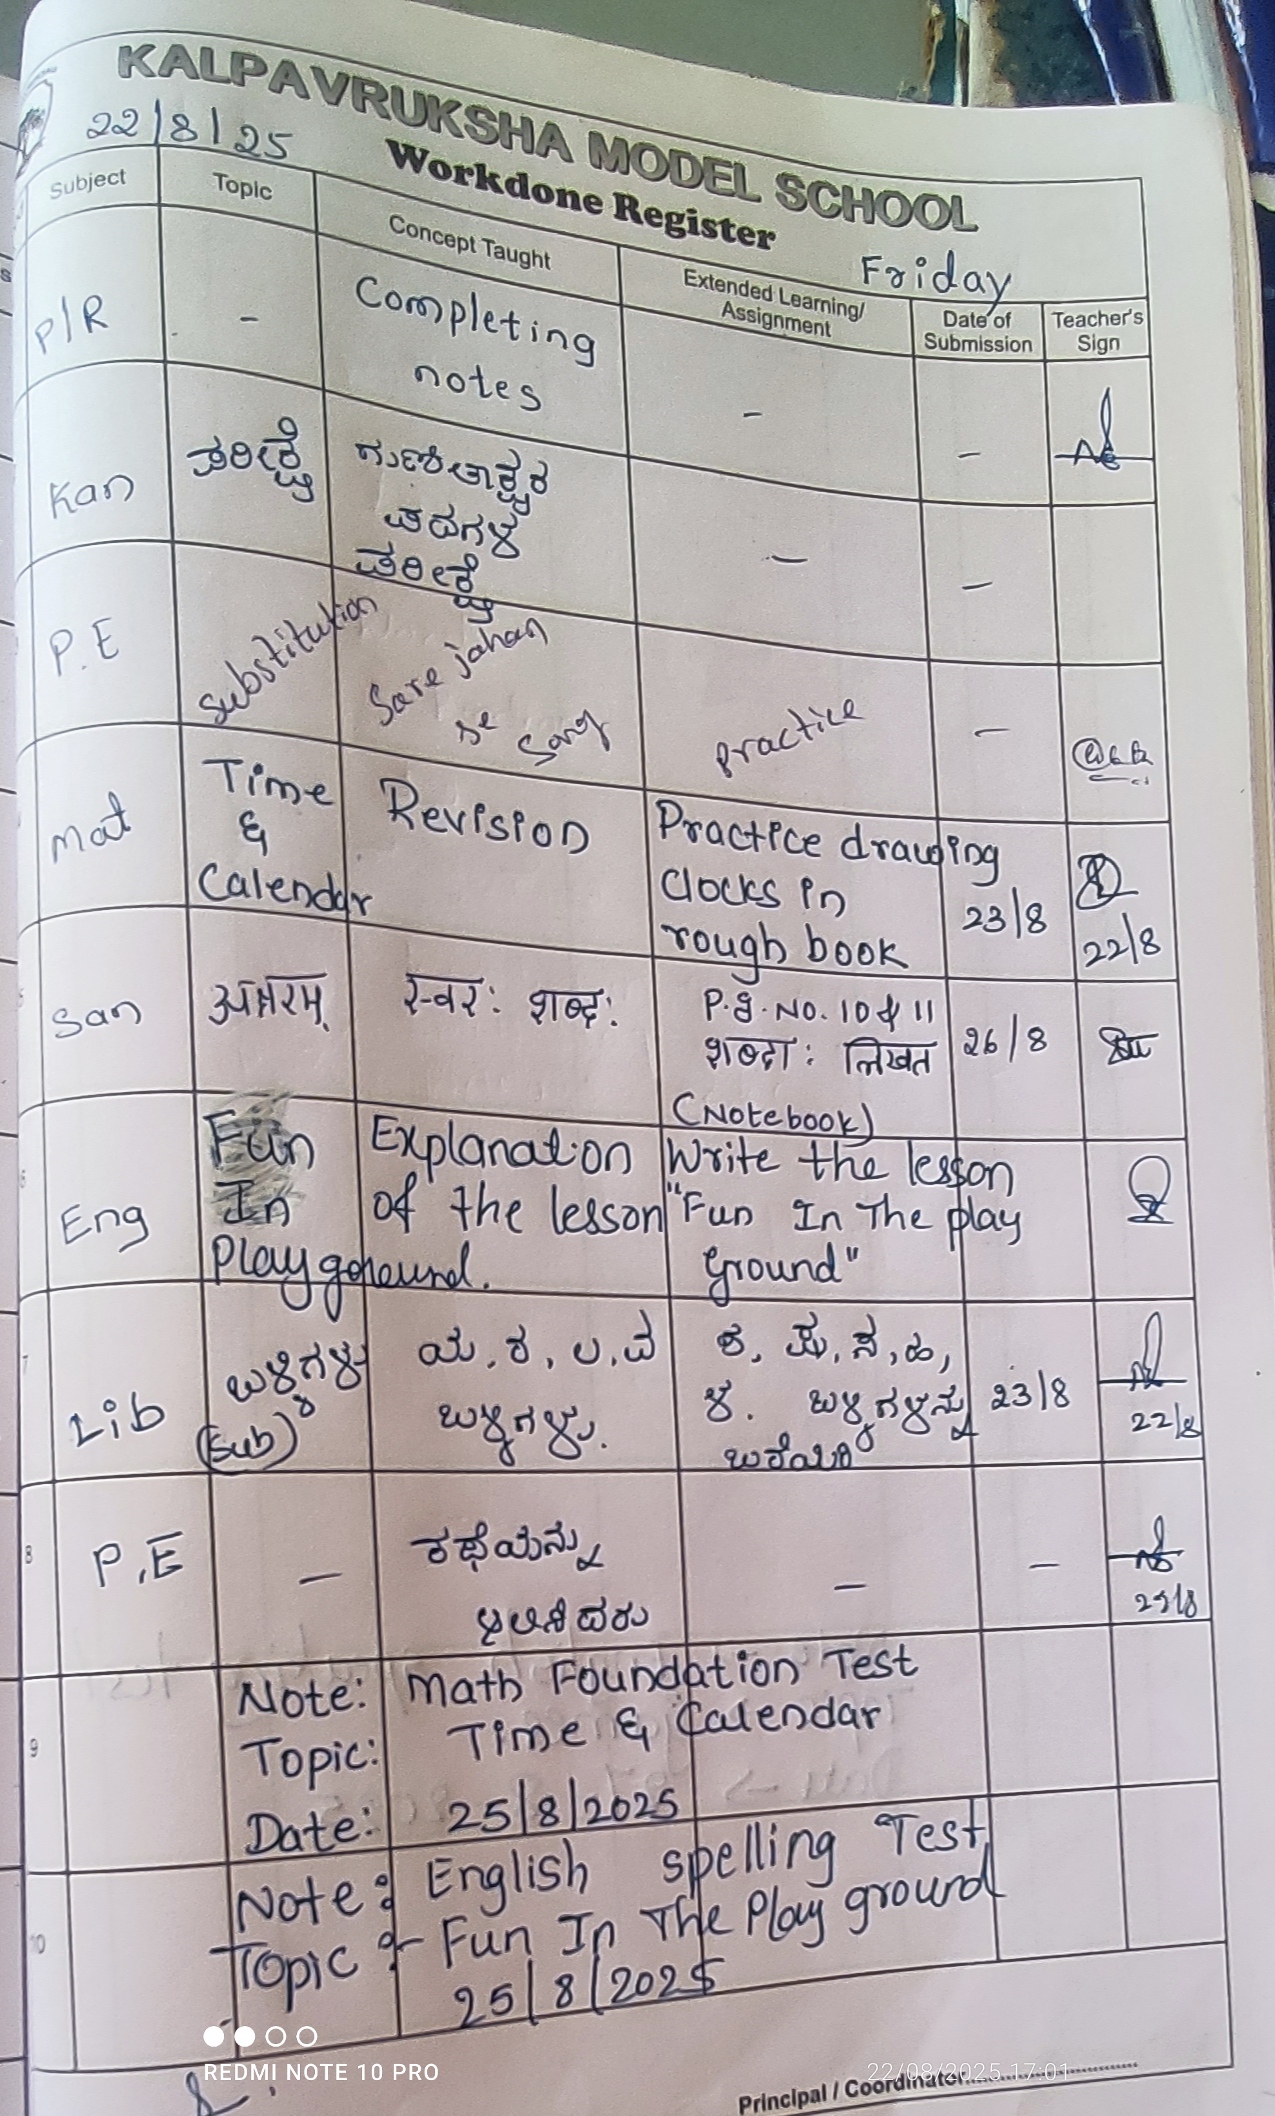 KALPAVRUKSHA MODEL SCHOOL
22/8/25
Workdone Register
Friday
Subject
Topic
Concept Taught
Extended Learning/
Assignment
Date of
Submission
Teacher's
Sign
P/R
-
Completing
notes
-
-
Kan
ಪರೀಕ್ಷೆ
ಗುಣಿತಾಕ್ಷರ
ಪದಗಳ
ಪರೀಕ್ಷೆ
-
-
P.E
substitution
Sare jahan
se song
practice
-
Mat
Time
&
Calendar
Revision
Practice drawing
clocks in
rough book
23/8
22/8
San
स्वरः शब्दः
P.g.No. 10 & 11
शब्दाः लिखत
(Notebook)
26/8
Eng
Fun
In
Playground.
Explanation
of the lesson
Write the lesson
"Fun In The play
ground"
7
Lib
ಬಳ್ಳಿಗಳು
(Sub)
ಯ, ರ, ಲ, ವ
ಬಳ್ಳಿಗಳು.
ಶ, ಷ, ಸ, ಹ,
ಳ. ಬಳ್ಳಿಗಳನ್ನು
ಬರೆಯಿರಿ
23/8
22/8
8
P.E
-
ಕಥೆಯನ್ನು
-
-
9
Note: Math Foundation Test
Topic: Time & Calendar
Date: 25/8/2025
10
Note: English spelling Test
Topic :- Fun In The Play ground
25/8/2025
REDMI NOTE 10 PRO
22/08/2025 17:01
Principal / Coordinator